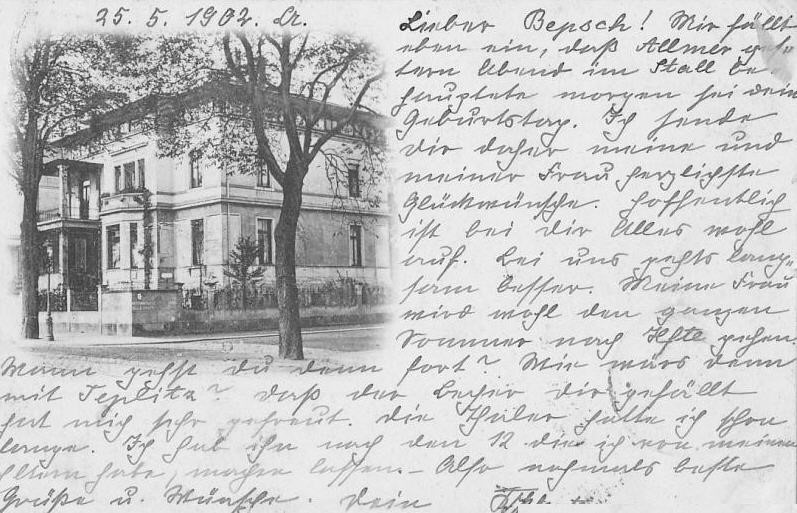 25. 5. 1902.
Lieber Bepsch! Mir fällt
eben ein, daß Allmer ges-
tern Abend im Stall be-
hauptete morgen sei dein
Geburtstag. Ich sende
dir daher meine und
meiner Frau herzlichste
Glückwünsche. Hoffentlich
ist bei dir Alles wohl
auf. Bei uns gehts lang-
sam besser. Meine Frau
wird wohl den ganzen
Sommer nach gehen.
Wann gehst du denn fort? Wie wärs denn
mit Teplitz? daß der Becher dir gefällt
hat mich sehr gefreut. die Thaler hatte ich schon
lange. Ich hab ihn nach den 12 die ich von meinen
Eltern habe, machen lassen. - Also nochmals beste
Grüße u. Wünsche. Dein